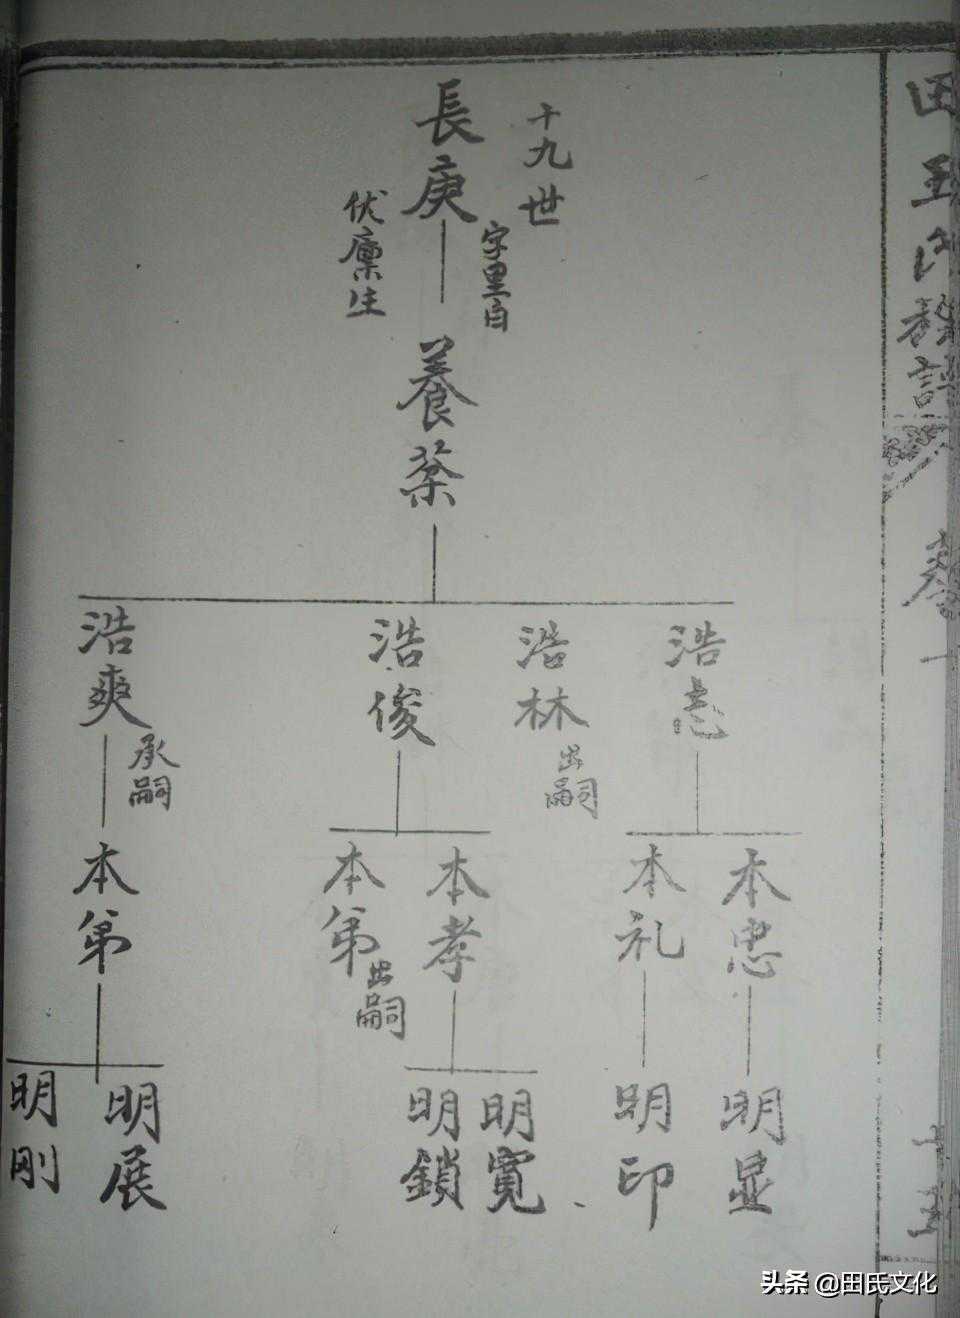 十九世
長庚
字里自
伏廩生
養棻
浩志
浩林
出嗣
浩俊
浩爽
承嗣
本忠
本礼
本孝
本弟
出嗣
本弟
明显
明印
明寬
明鎖
明展
明刚
头条 @田氏文化